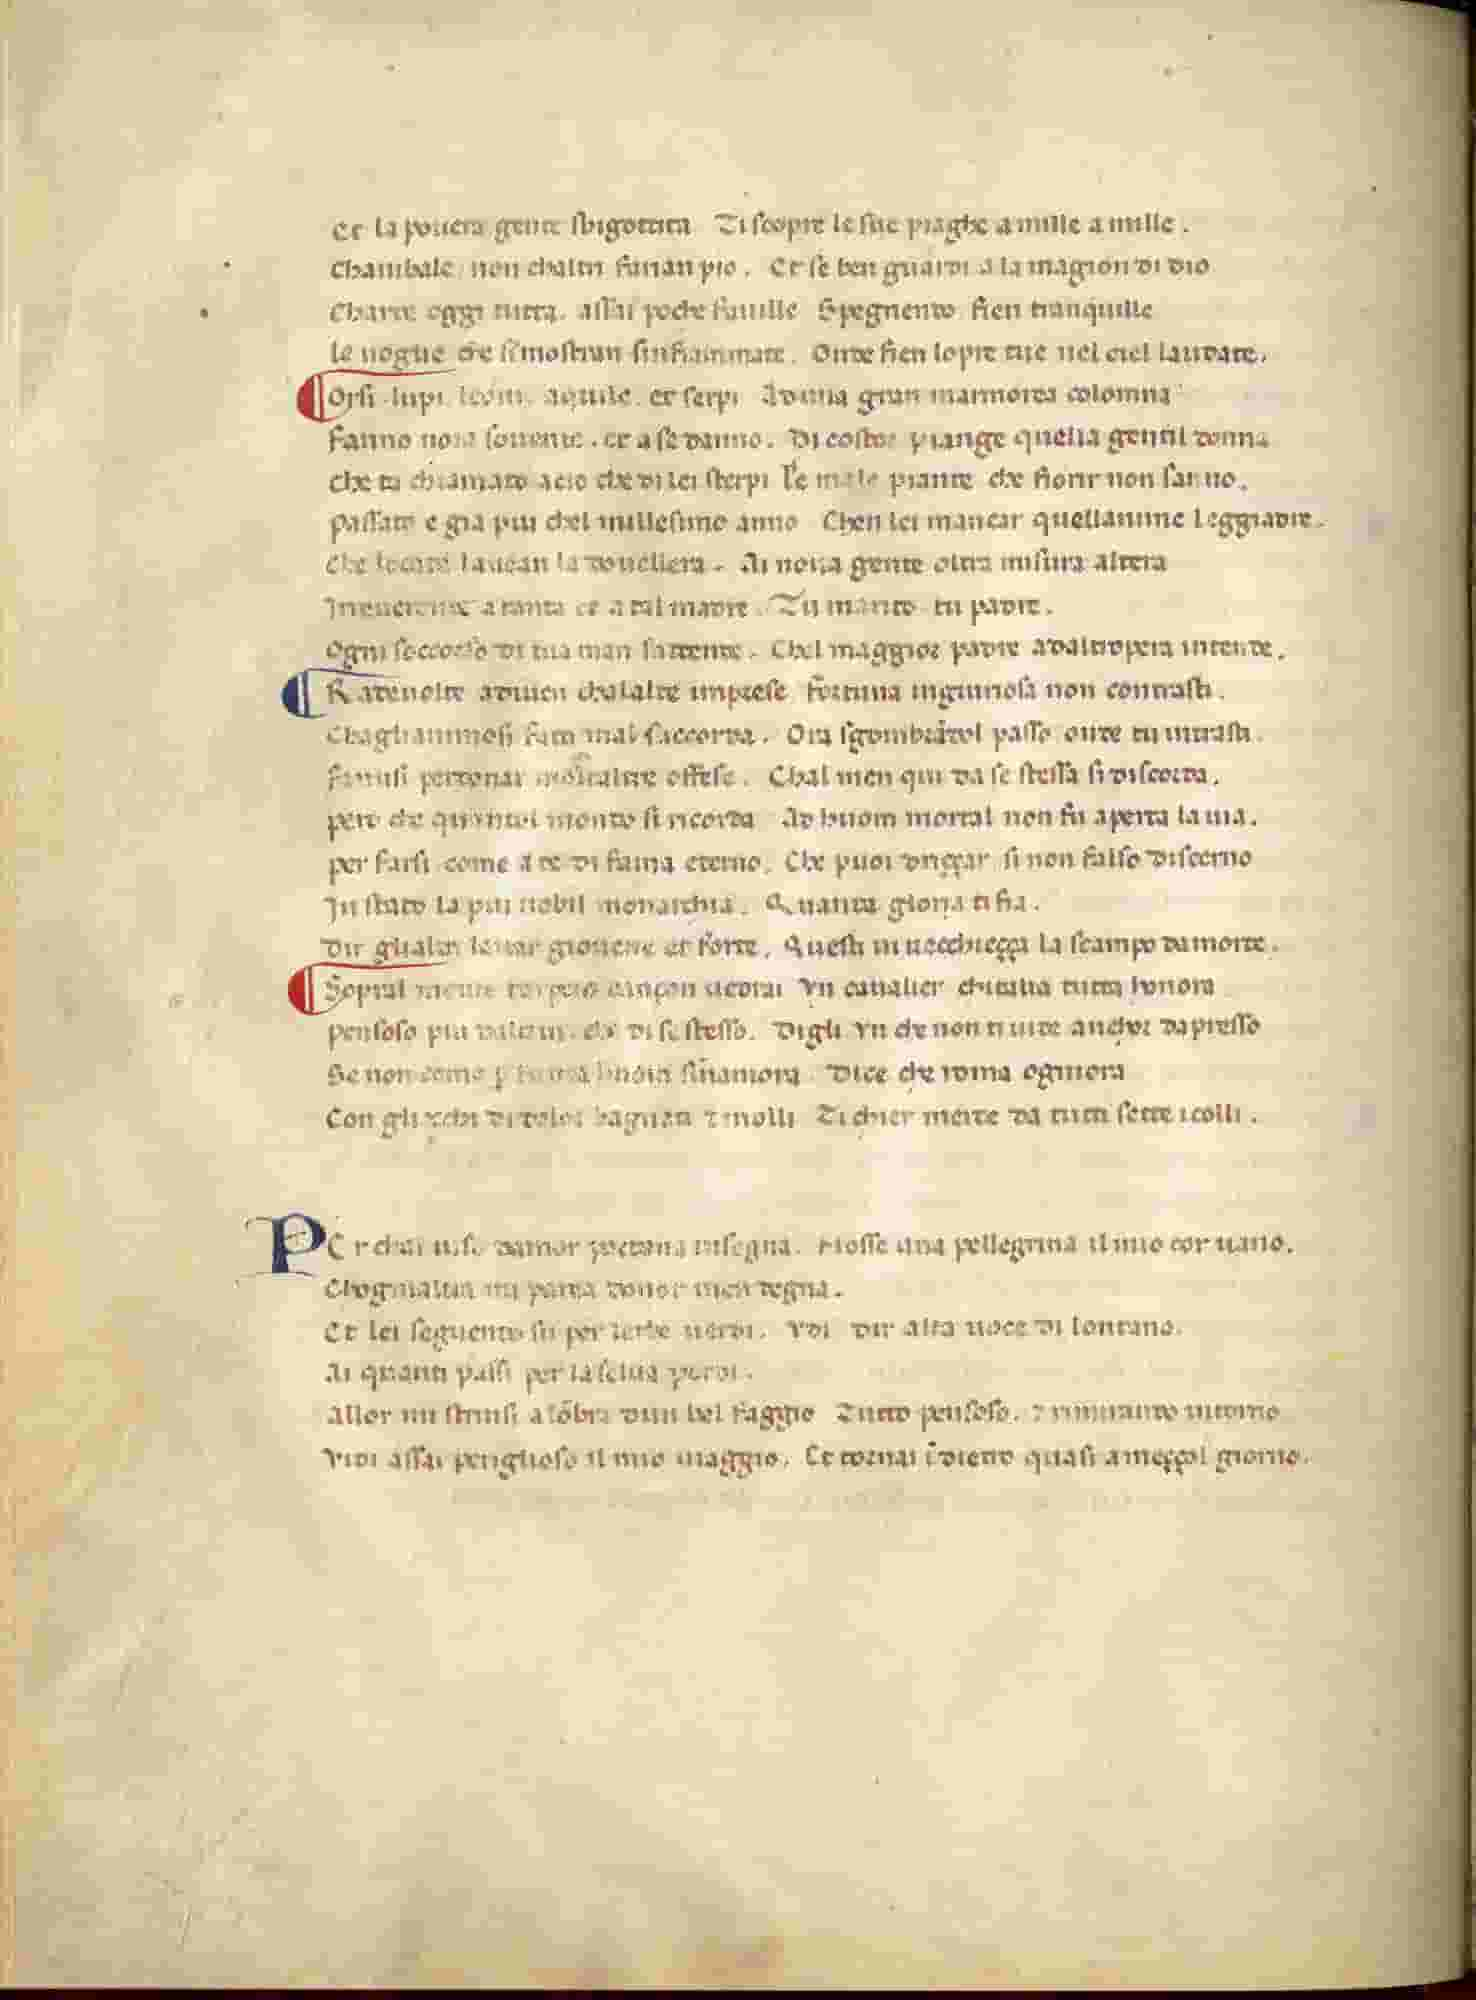 Et la pouera gente sbigottita Ti scopre le sue piaghe a mille a mille.
Chanibale, non chaltri farian pio. Et se ben guardi a la magion di dio
Charde oggi tutta. assai poche fauille Spegnendo fien tranquille
le uoglie che si mostran sinfiammate. Onde fien lopre tue nel ciel laudate.
Orsi lupi leoni aquile. et serpi Ad una gran marmorea colomna
Fanno noia souente. et a se danno. Di costor piange quella gentil donna
Che ta chiamato acio che di lei sterpi Le male piante che fiorir non sanno.
Passato e gia piu chel millesimo anno Chen lei mancar quellanime leggiadre.
Che locata lauean la douellera. Ai noua gente oltra misura altera
Inreuerente a tanta et a tal madre. Tu marito tu padre.
Ogni soccorso di tua man sattende. Chel maggior padre adaltropera intende.
Rade uolte aduien chalalte imprese fortuna ingiuriosa non contrasti.
Chaglianimosi fatti mal saccorda. Ora sgombrandol passo onde tu intrasti.
Famisi perdonar moltaltre offese. Chal men qui da se stessa si discorda.
pero che quantol mondo si ricorda Ad huom mortal non fu aperta la uia.
per farsi come a te di fama eterno. Che puoi driççar si non falso discerno
In stato la piu nobil monarchia. Quanta gloria ti fia.
Dir glialtri laitar giouene et forte. Questi in uecchieçça la scampo da morte.
Sopral monte tarpeio cançon uedrai Vn caualier chitalia tutta honora
pensoso piu daltrui. che di se stesso. Digli. vn che non ti uide anchor dapresso
Se non come per fama huom sinnamora. Dice che roma ogniora
Con gli occhi di dolor bagnati 7 molli Ti chier merce da tutti sette i colli.
PEr chal uiso damor portaua insegna. Mosse una pellegrina il mio cor uano.
Chognialtra mi parea donor men degna.
Et lei seguendo su per lerbe uerdi. Vdi dir alta uoce di lontano.
Ai quanti passi per la selua perdi.
Allor mi strinsi a lombra dun bel faggio Tutto pensoso. 7 rimirando intorno
Vidi assai periglioso il mio uiaggio. Et tornai indietro quasi a meççol giorno.